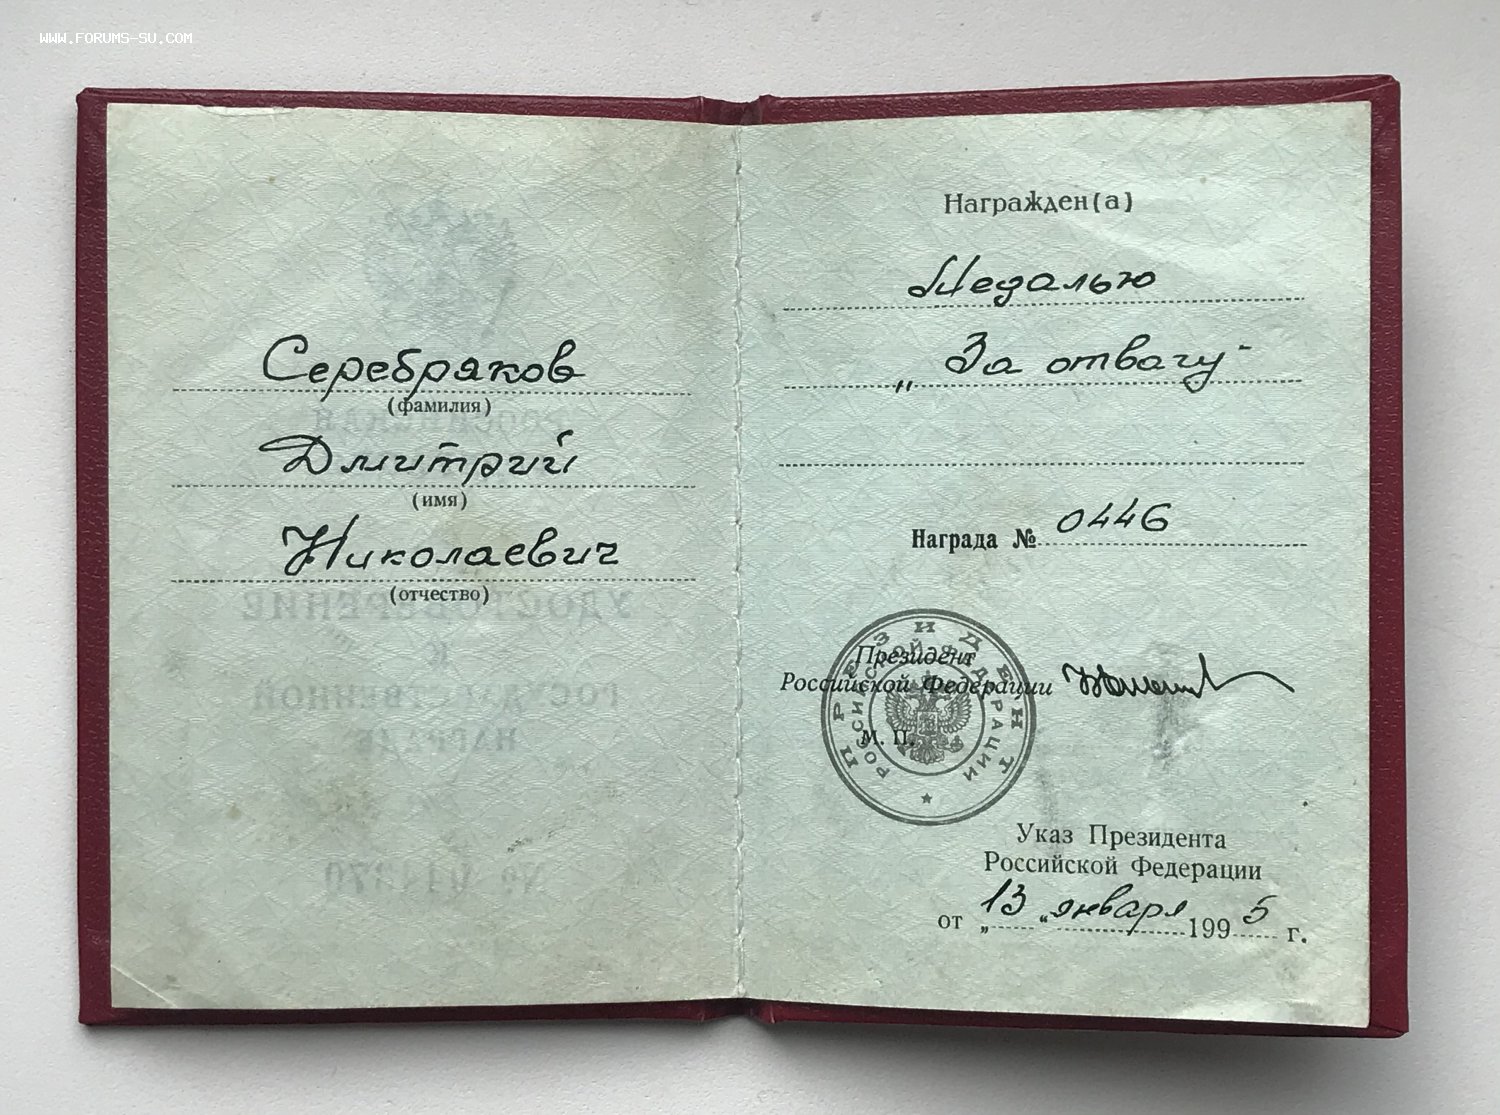 WWW.FORUMS-SU.COM
Серебряков
(фамилия)
Дмитрий
(имя)
Николаевич
(отчество)
УДОСТОВЕРЕНИЕ
К
ГОСУДАРСТВЕННОЙ
НАГРАДЕ
Награжден(а)
Медалью
„За отвагу"
Награда № 0446
Президент
Российской Федерации
М. П.
ПРЕЗИДЕНТ
РОССИЙСКОЙ ФЕДЕРАЦИИ
Указ Президента
Российской Федерации
от „13“ января 1995 г.